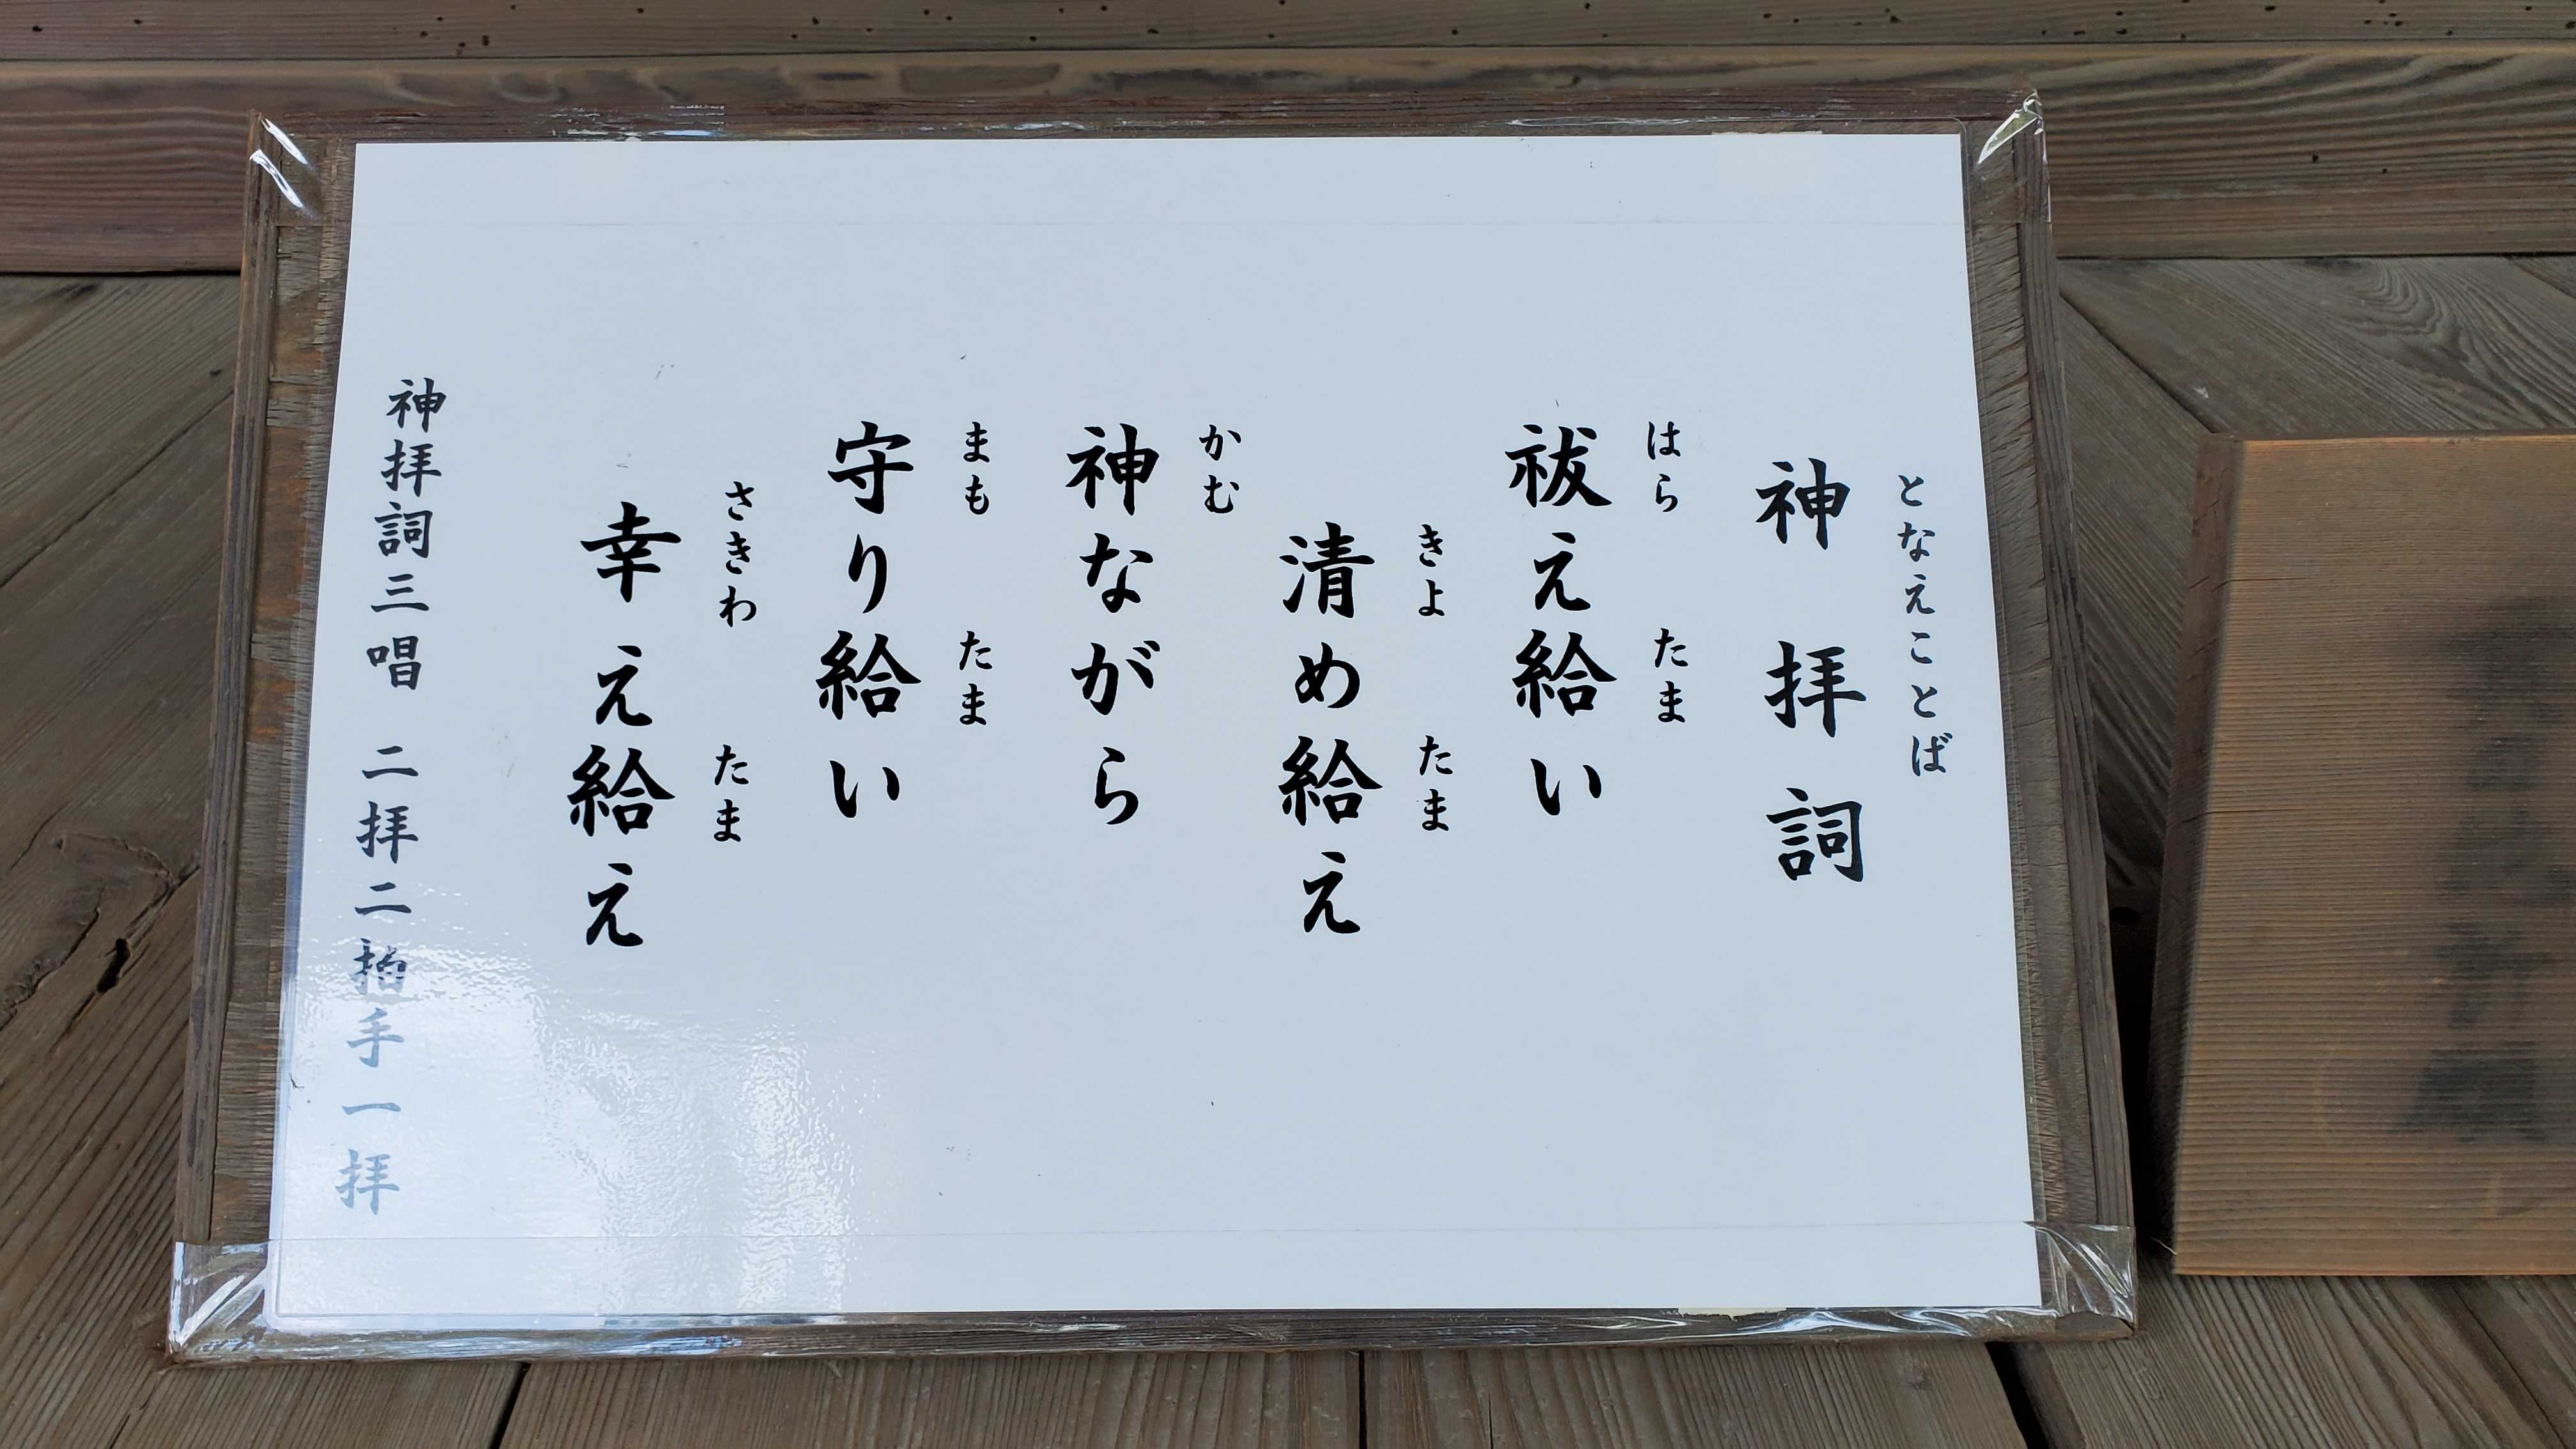 となえことば
神拝詞
はら たま
祓え給い
きよ たま
清め給え
かむ
神ながら
まも たま
守り給い
さきわ たま
幸え給え
神拝詞三唱 二拝二拍手一拝